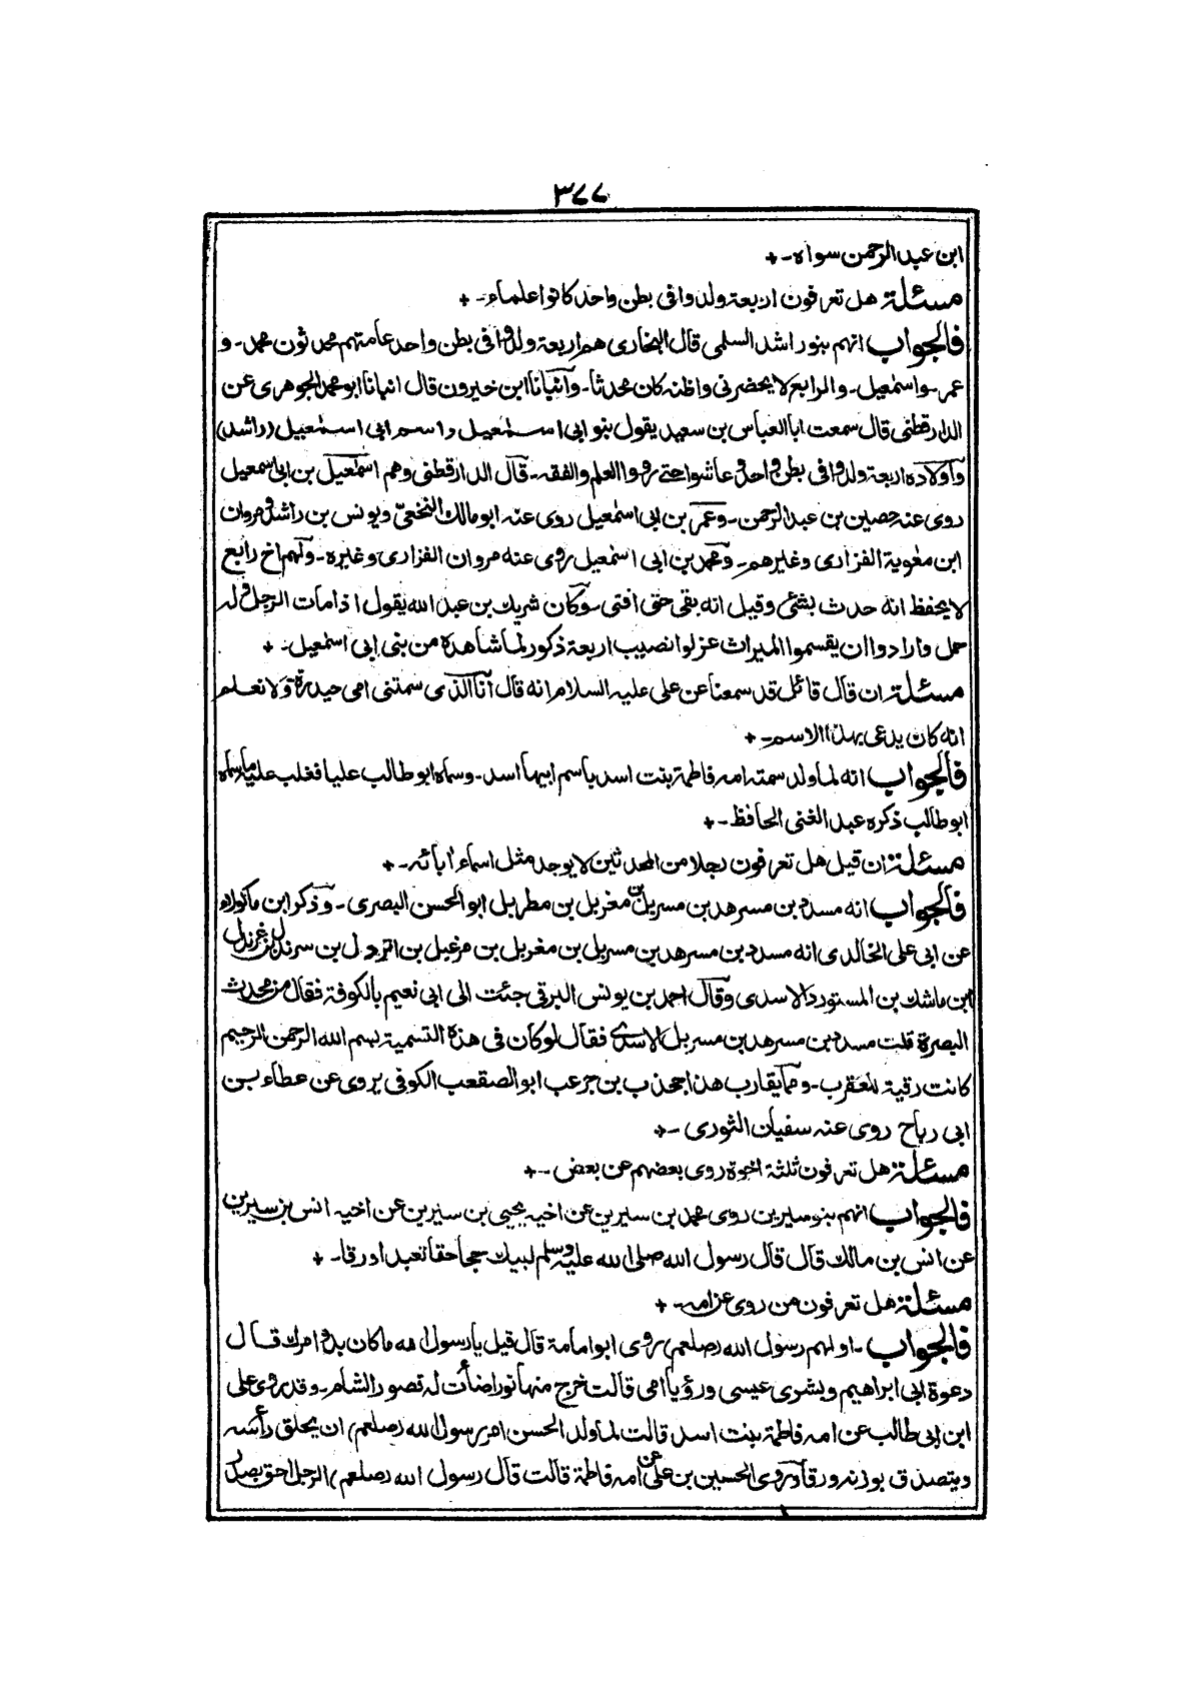 ٣٧٧
ابن عبد الرحمن سواه-+
مسئلة هل تعرفون اربعة ولدوا فى بطن واحد كانوا علماء-+
فالجواب انهم بنو راشد السلمى قال البخارى هم اربعة ولدوا فى بطن واحد عامتهم محدثون محمد- و
عمر- واسمٰعيل- والرابع لا يحضرنى واظنه كان محدثا- وانبانا ابن خيرون قال انبانا ابو محمد الجوهرى عن
الدارقطنى قال سمعت ابا العباس بن سعيد يقول بنو ابى اسمٰعيل واسم ابى اسمٰعيل (راشد)
واولاده اربعة ولدوا فى بطن واحد وعاشوا حتى رووا العلم والفقه- قال الدارقطنى وهم اسمٰعيل بن ابى اسمعيل
روى عنه حصين بن عبد الرحمن- وعمر بن ابى اسمٰعيل روى عنه ابو مالك النخعىّ ويونس بن راشد ومروان
ابن معٰوية الفزارى وغيرهم- ومحمد بن ابى اسمٰعيل روى عنه مروان الفزارى وغيره- ولهم اخ رابع
لا يحفظ انه حدث بشئ وقيل انه بقى حتى افتى- وكان شريك بن عبد الله يقول اذا مات الرجل وله
حمل فارادوا ان يقسموا الميراث عزلوا نصيب اربعة ذكور لما شاهده من بنى ابى اسمٰعيل- +
مسئلة ان قال قائل قد سمعنا عن على عليه السلام انه قال انا الذى سمتنى امى حيدرة ولا نعلم
انه كان يدعى بهذا الاسم-+
فالجواب انه لما ولد سمته امه فاطمة بنت اسد باسم ابيها اسد- وسماه ابو طالب عليا فغلب عليه ما سماه
ابو طالب ذكره عبد الغنى الحافظ-+
مسئلة ان قيل هل تعرفون رجلا من المحدثين لا يوجد مثل اسماء اٰبائه-+
فالجواب انه مسدد بن مسرهد بن مسربل بن مغربل بن مطربل ابو الحسن البصرى- وذكر ابن ماكولاء
عن ابى على الخالدى انه مسدد بن مسرهد بن مسربل بن مغربل بن مرغبل بن ارندل بن سرندل بن غرندل
ابن ماشك بن المستورد الاسدى وقال احمد بن يونس البرقى جئت الى ابى نعيم بالكوفة فقال من محدث
البصرة قلت مسدد بن مسرهد بن مسربل الاسدى فقال لو كان فى هذه التسمية بسم الله الرحمن الرحيم
كانت رقية للعقرب- ومما يقارب هذا جخدب بن جرعب ابو الصقعب الكوفى يروى عن عطاء بن
ابى رباح روى عنه سفيان الثورى-+
مسئلة هل تعرفون ثلثة اخوة روى بعضهم عن بعض-+
فالجواب انهم بنو سيرين روى محمد بن سيرين عن اخيه يحيى بن سيرين عن اخيه انس بن سيرين
عن انس بن مالك قال قال رسول الله صلى الله عليه وسلم لبيك حجا حقا تعبدا ورقا- +
مسئلة هل تعرفون من روى عن امه-+
فالجواب- اولهم رسول الله (صلعم) روى ابو امامة قال قيل يا رسول الله ما كان بدو امرك قال
دعوة ابى ابراهيم وبشرى عيسى ورؤيا امى قالت خرج منها نور اضأت له قصور الشام- وقد روى على
ابن ابى طالب عن امه فاطمة بنت اسد قالت لما ولد الحسن امر رسول الله (صلعم) ان يحلق رأسه
ويتصدق بوزنه ورقا وروى الحسين بن على عن امه فاطمة قالت قال رسول الله (صلعم) الرجل احق بصدر